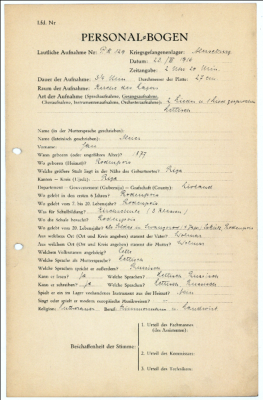 Lfd. Nr.
PERSONAL-BOGEN
Lautliche Aufnahme Nr.: PK Kriegsgefangenenlager:
Datum:
Zeitangabe:
Dauer der Aufnahme: 3/4 Durchmesser der Platte: 27 cm
Raum der Aufnahme: des Lagers
Art der Aufnahme (Sprechaufnahme, Gesangsaufnahme,
Choraufnahme, Instrumentenaufnahme, Orchesteraufnahme): 2 Lieder
Name (in der Muttersprache geschrieben):
Name (lateinisch geschrieben):
Vorname: Jans
Wann geboren (oder ungefähres Alter)? 1877
Wo geboren (Heimat)? Rodenpois
Welche größere Stadt liegt in der Nähe des Geburtsortes? Riga
Kanton — Kreis (Ujedz): Riga
Department — Gouvernement (Gubernija) — Grafschaft (County): Livland
Wo gelebt in den ersten 6 Jahren? Rodenpois
Wo gelebt vom 7. bis 20. Lebensjahr? Rodenpois
Was für Schulbildung? (3 Klassen)
Wo die Schule besucht? Rodenpois
Wo gelebt vom 20. Lebensjahr? Rodenpois
Aus welchem Ort (Ort und Kreis angeben) stammt der Vater? Wolmar
Aus welchem Ort (Ort und Kreis angeben) stammt die Mutter? Wolmar
Welchem Volksstamm angehörig? Lette
Welche Sprache als Muttersprache? Lettisch
Welche Sprachen spricht er außerdem? Russisch
Kann er lesen? Ja Welche Sprachen? Lettisch Russisch
Kann er schreiben? Ja Welche Sprachen? Lettisch Russisch
Spielt er ein im Lager vorhandenes Instrument aus der Heimat? Nein
Singt oder spielt er modern europäische Musikweisen?
Religion: Lutheraner Beruf: und Landwirt
Beschaffenheit der Stimme:
1. Urteil des Fachmannes
(des Assistenten):
2. Urteil des Kommissars:
3. Urteil des Technikers: